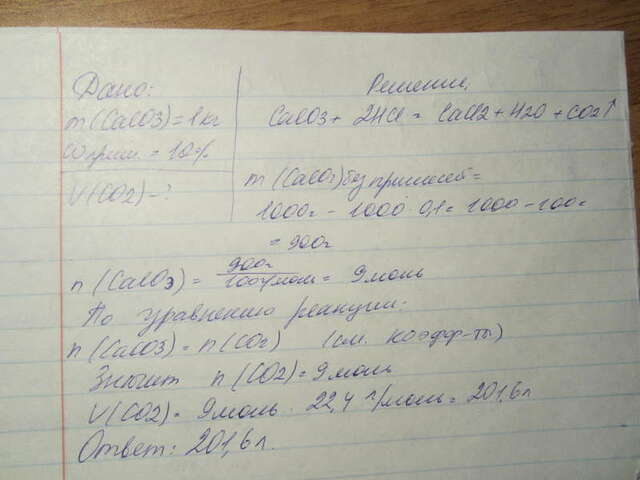 Дано:
m(CaCO3)=1кг
ωприм. = 10%
V(CO2)-?
Решение.
CaCO3 + 2HCl = CaCl2 + H2O + CO2↑
m(CaCO3)без примесей=
1000г - 1000·0,1= 1000-100г
= 900г
n(CaCO3) = 900г/100г/моль = 9моль
По уравнению реакции:
n(CaCO3) = n(CO2) (см. коэфф-ты)
Значит n(CO2)=9моль
V(CO2)= 9моль · 22,4 л/моль = 201,6л
Ответ: 201,6л.